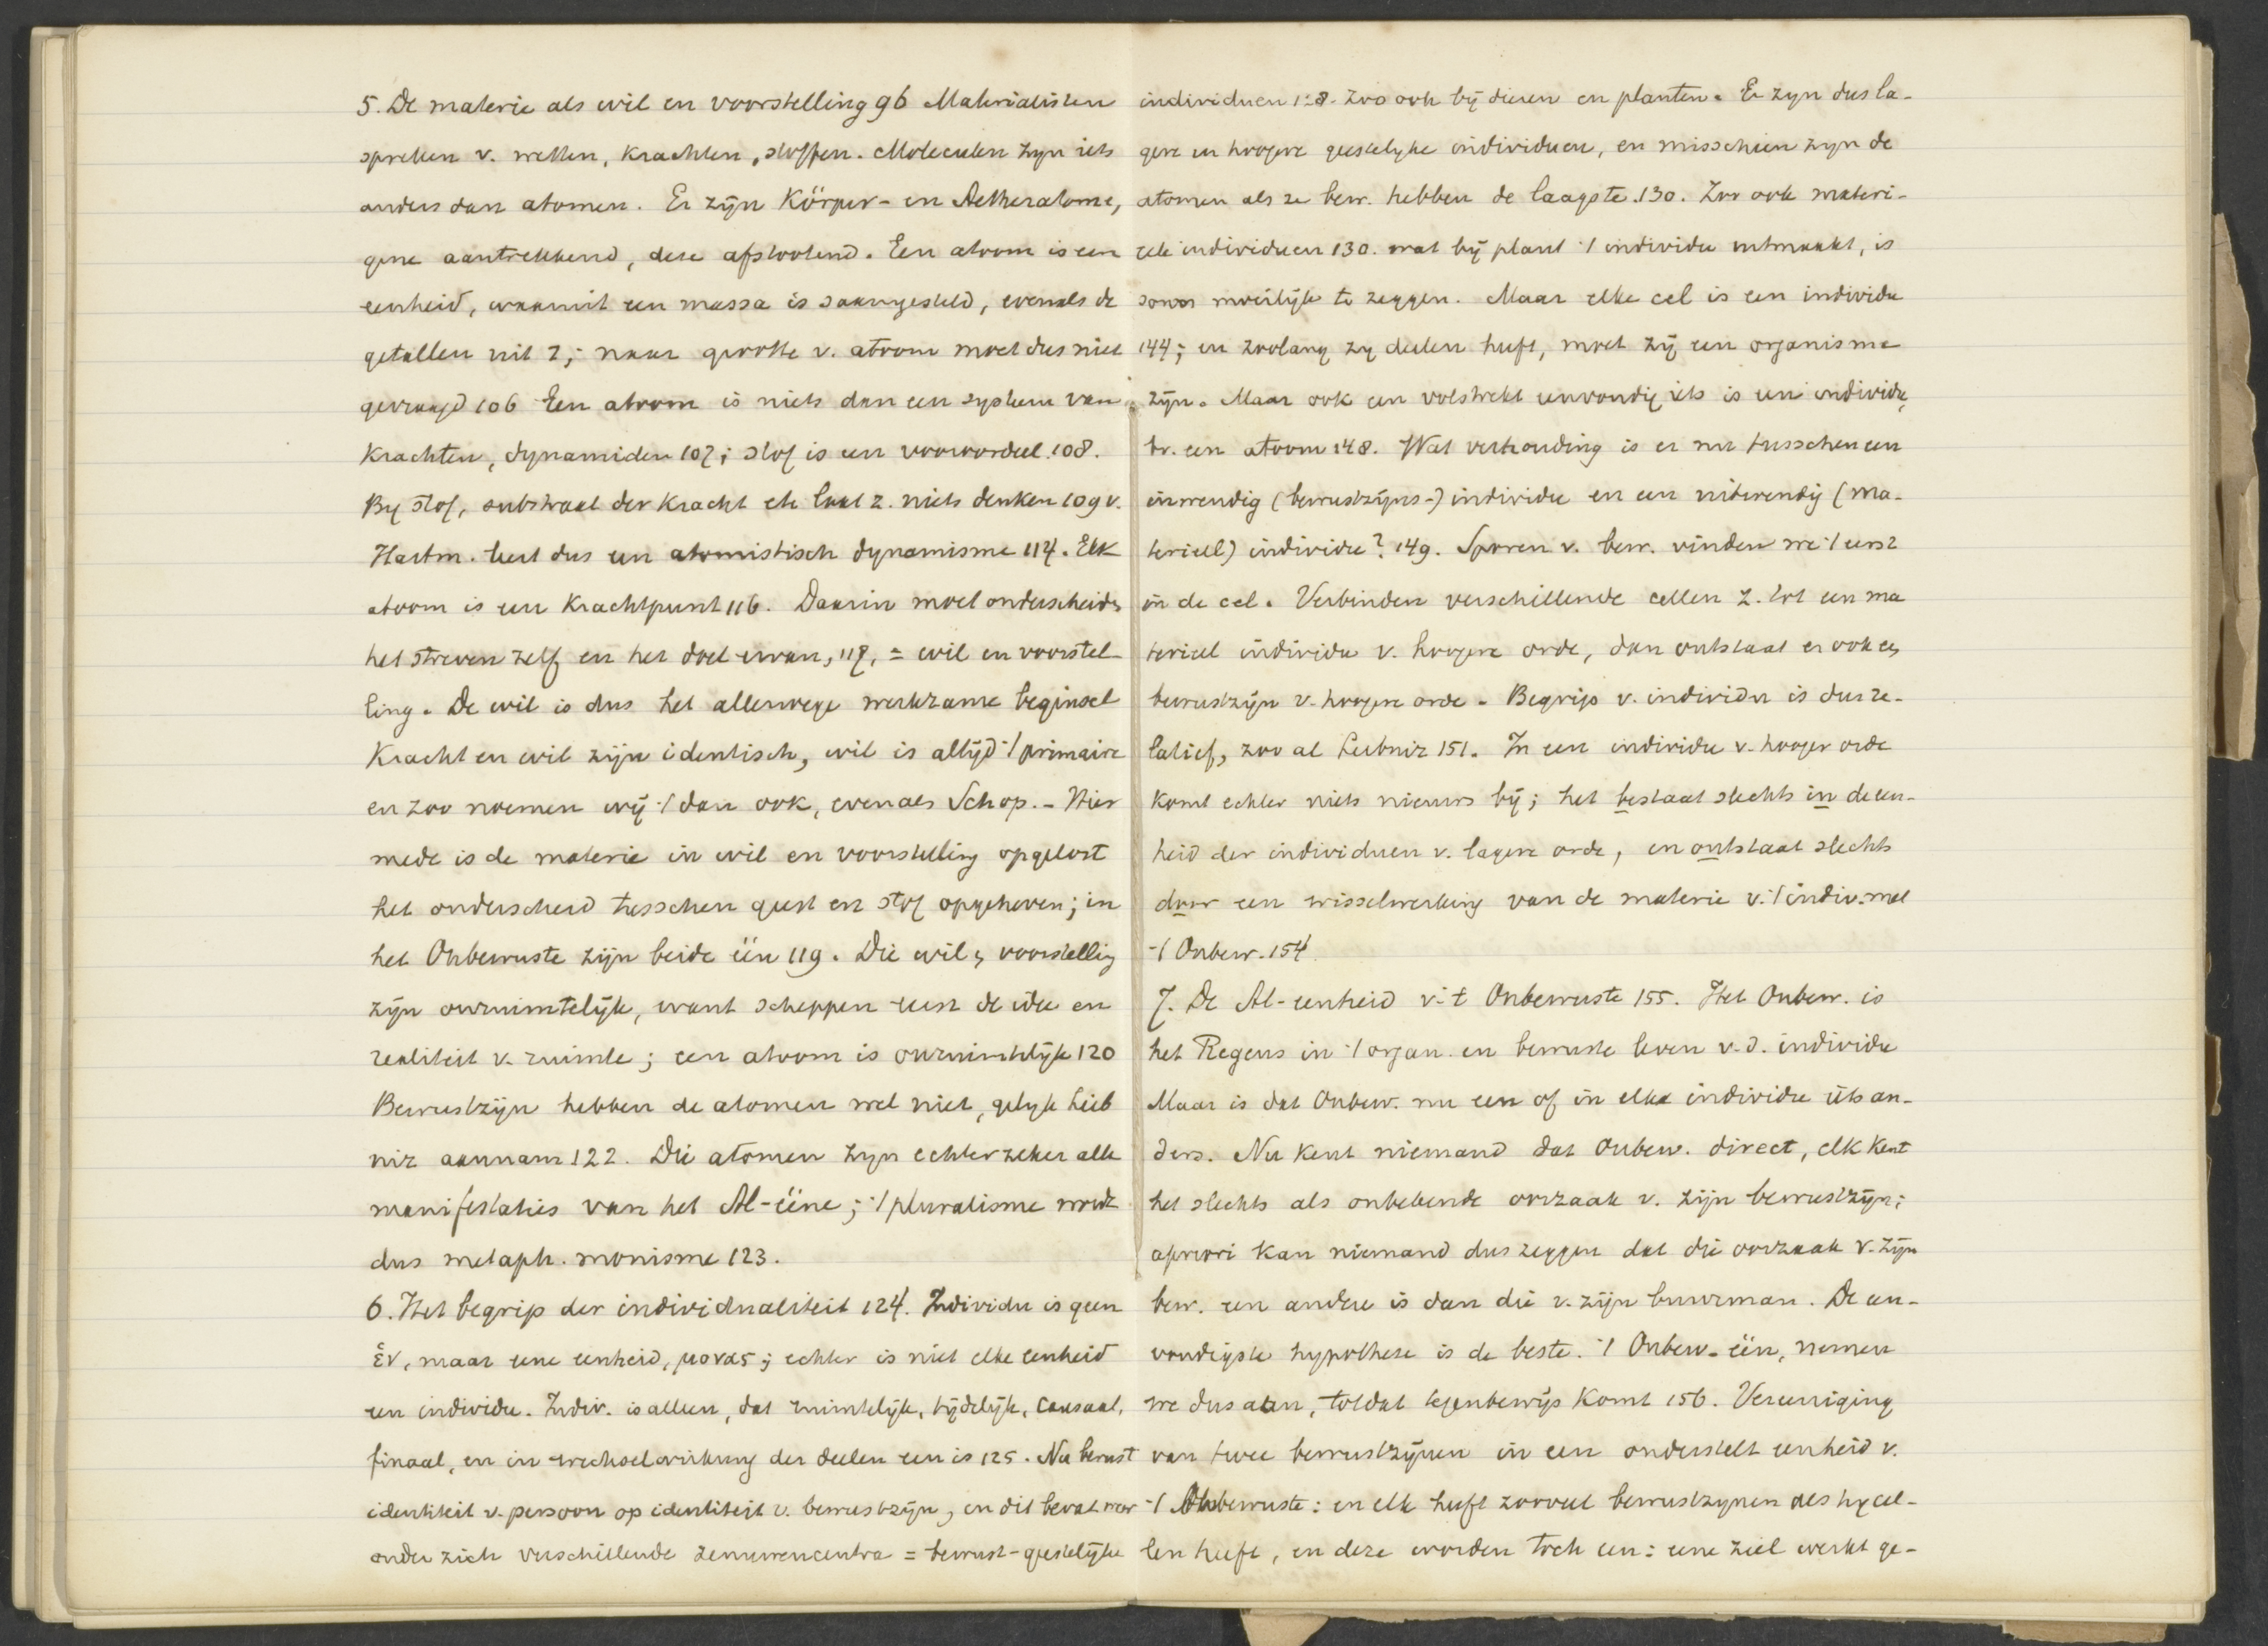 5. De materie als wil en voorstelling 96 Materialisten
spreken v. wetten, krachten, stoffen. Moleculen zyn iets
anders dan atomen. Er zijn Körper- en Aetheratome,
gene aantrekkend, deze afstootend. Een atoom is een
eenheid, waaruit een massa is saamgesteld, evenals de
getallen uit 1; naar grootte v. atoom moet dus niet
gevraagd 106 Een atoom is niets dan een systeem van
krachten, dynamiden 107; stof is een vooroordeel 108.
By stof, substraat der kracht etc laat z. niets denken 109 v.
Hartm. leert dus een atomistisch dynamisme 114. Elk
atoom is een krachtpunt 116. Daarin moet onderscheiden
het streven zelf en het doel ervan, 117, = wil en voorstel-
ling. De wil is dus het allerwege werkzame beginsel
Kracht en wil zijn identisch, wil is altijd 't primaire
en zoo noemen wij 't dan ook, evenals Schop. - Hier
mede is de materie in wil en voorstelling opgelost
het onderscheid tusschen geest en stof opgeheven; in
het Onbewuste zijn beide één 119. Die wil en voorstelling
zijn onruimtelijk, want scheppen eerst de idee en
realiteit v. ruimte; een atoom is onruimtelijk 120
Bewustzijn hebben de atomen wel niet, gelyk Leib
niz aannam 122. Die atomen zyn echter zeker alle
manifestaties van het Al-ééne; 't pluralisme wordt
dus metaph. monisme 123.
6. Het begrip der individualiteit 124. Individu is geen
ἕν, maar eene eenheid, μονας; echter is niet elke eenheid
een individu. Indiv. is alleen, dat ruimtelijk, tijdelijk, causaal,
finaal, en in wechselwirkung der deelen een is 125. Nu berust
identiteit v. persoon op identiteit v. bewustzijn, en dit bevat weer
onder zich verschillende zenuwencentra = bewust-geestelijke
individuen 128. Zoo ook bij dieren en planten. Er zyn dus la-
gere en hoogere geestelyke individuen, en misschien zyn de
atomen als ze bew. hebben de laagste 130. Zoo ook materi-
eele individuen 130. wat bij plant 't individu uitmaakt, is
soms moeilijk te zeggen. Maar elke cel is een individu
144; en zoolang zy deelen heeft, moet zij een organisme
zijn. Maar ook een volstrekt eenvoudig iets is een individu,
bv. een atoom 148. Wat verhouding is er nu tusschen een
inwendig (bewustzijns-) individu en een uitwendig (ma-
terieel) individu? 149. Sporen v. bew. vinden we 't eerst
in de cel. Verbinden verschillende cellen z. tot een ma
terieel individu v. hoogere orde, dan ontstaat er ook een
bewustzijn v. hoogere orde. Begrip v. individu is dus re-
latief, zoo al Leibniz 151. In een individu v. hooger orde
komt echter niets nieuws bij; het bestaat slechts in de een-
heid der individuen v. lagere orde, en ontstaat slechts
door een wisselwerking van de materie v. 't indiv. met
't Onbew. 154
7. De Al-eenheid v. 't Onbewuste 155. Het Onbew. is
het Regens in 't organ. en bewuste leven v. d. individu
Maar is dat Onbew. nu een of in elke individu iets an-
ders. Nu kent niemand dat Onbew. direct, elk kent
het slechts als onbekende oorzaak v. zijn bewustzijn;
apriori kan niemand dus zeggen dat die oorzaak v. zijn
bew. een andere is dan die v. zijn buurman. De een-
voudigste hypothese is de beste. 't Onbew. één, nemen
we dus aan, totdat tegenbewijs komt 156. Vereeniging
van twee bewustzijnen in een onderstelt eenheid v.
't Onbewuste: en elk heeft zooveel bewustzynen als hy cel-
len heeft, en deze worden toch een: eene ziel werkt ge-